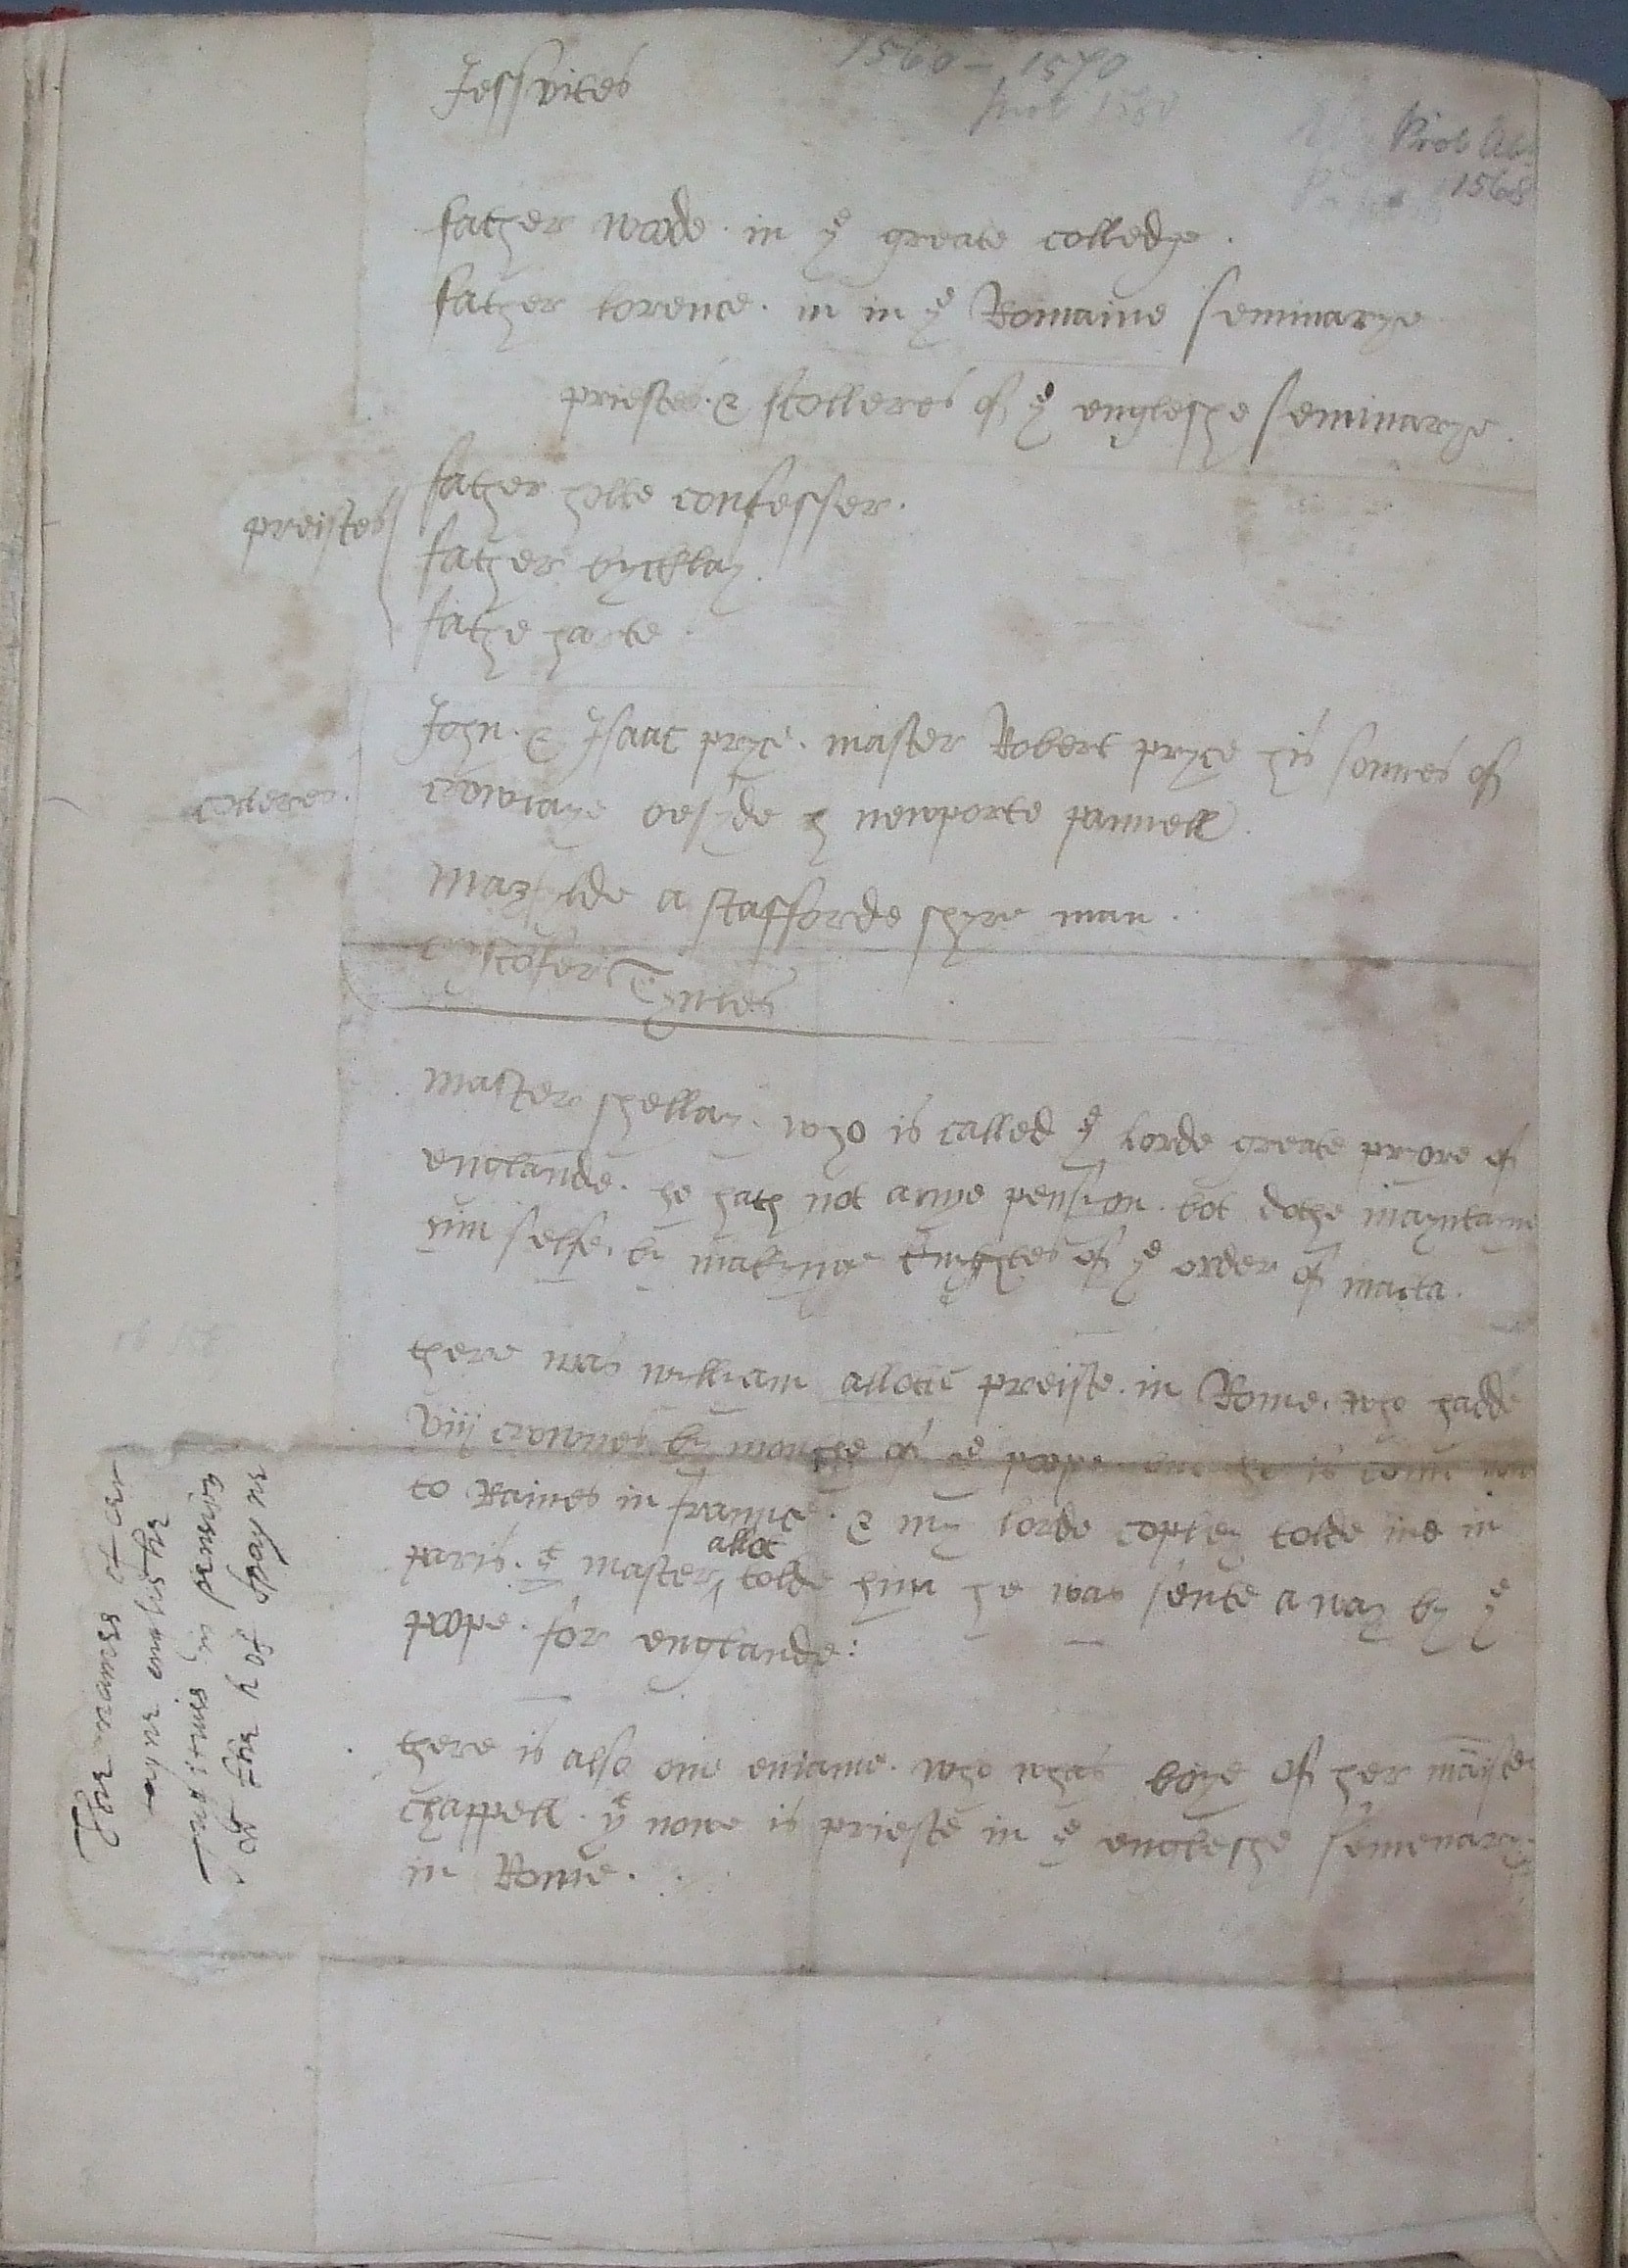 Jessvites
1560 – 1570
Prob 1580
Prob Ab:
1568
father wode. in ye greate colledge.
father lorence. in in ye Romaine seminarye
priestes. & skolleres of ye engleshe seminarye.
father holle confesser.
preistes
father bycklay.
fathe harte.
John. & Jsaac pryce. master Robert pryce his sonnes of
colleres.
crowlaye besyde h newporte pannell.
maxfylde a stafforde shyre man.
cristofer
master shellay. who is called ye lorde greate pryore of
englande. he hath not anye pension. bot dothe mayntayne
him selfe. by makynge knightes of ye order of malta.
there was wylliam allott preiste. in Rome. who hadde
viij crownes by monthe of ye pope. he is come
to Raines in france. & my lorde copley tolde me in
paris. yt master allot tolde him he was sente a way by ye
pope. for englande:
there is also one who whas boye of her maiste
chappell. yt nowe is prieste in ye engleshe semenarye
in Rome.
The names of cer
tayne englishe
fugitives in pension
of the k of Spayne